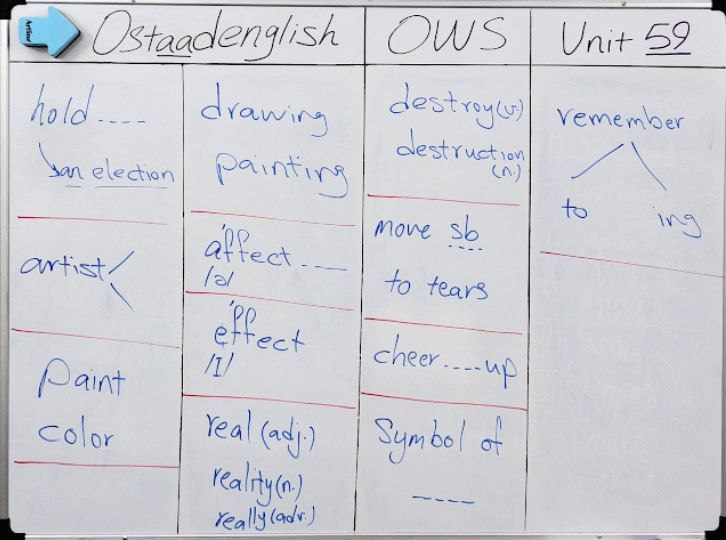 Ostaadenglish
OWS
Unit 59
hold ....
an election
artist
paint
color
drawing
painting
affect ....
/ə/
effect
/I/
real (adj.)
reality (n.)
really (adv.)
destroy (v.)
destruction
(n.)
move sb
to tears
cheer .... up
Symbol of
....
remember
to
ing